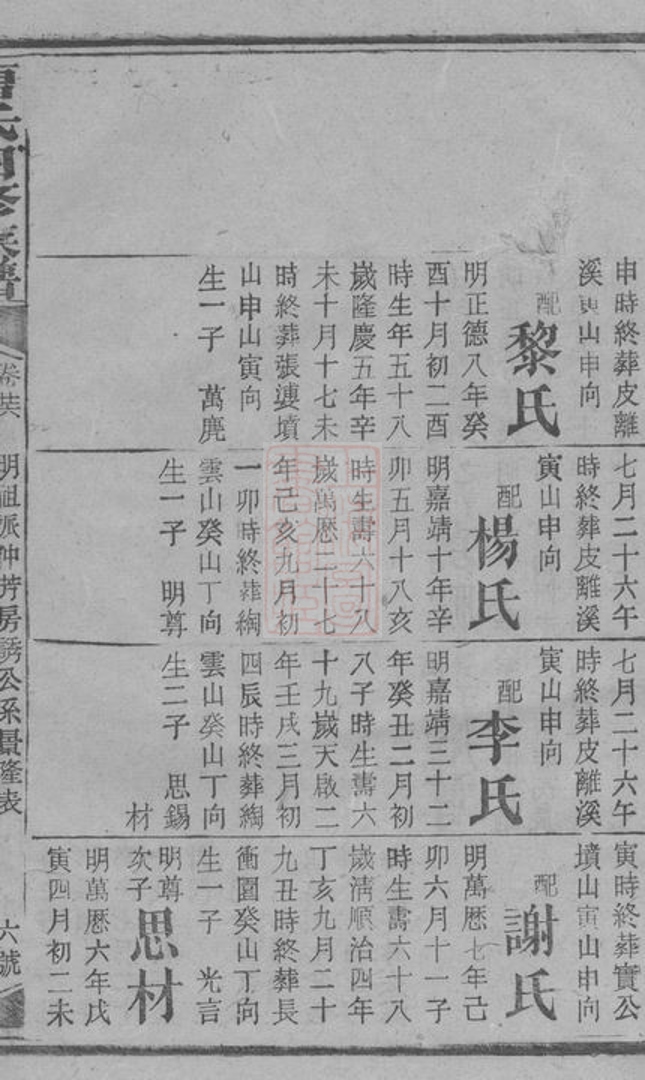 申時終葬皮離
溪寅山申向
配
黎氏
明正德八年癸
酉十月初二酉
時生年五十八
歲隆慶五年辛
未十月十七未
時終葬張婆墳
山申山寅向
生一子 萬麂
七月二十六午
時終葬皮離溪
寅山申向
配
楊氏
明嘉靖十年辛
卯五月十八亥
時生壽六十八
歲萬厯二十七
年己亥九月初
一卯時終葬綯
雲山癸山丁向
生一子 明尊
七月二十六午
時終葬皮離溪
寅山申向
配
李氏
明嘉靖三十二
年癸丑二月初
八子時生壽六
十九歲天啟二
年壬戌三月初
四辰時終葬綯
雲山癸山丁向
生二子 思錫
材
寅時終葬實公
墳山寅山申向
配
謝氏
明萬厯七年己
卯六月十一子
時生壽六十八
歲淸順治四年
丁亥九月二十
九丑時終葬長
衝園癸山丁向
生一子 光言
明尊
次子
思材
明萬厯六年戊
寅四月初二未
氏四修族譜
卷廿六
明祖派仲芳房誘公系景隆表
六號